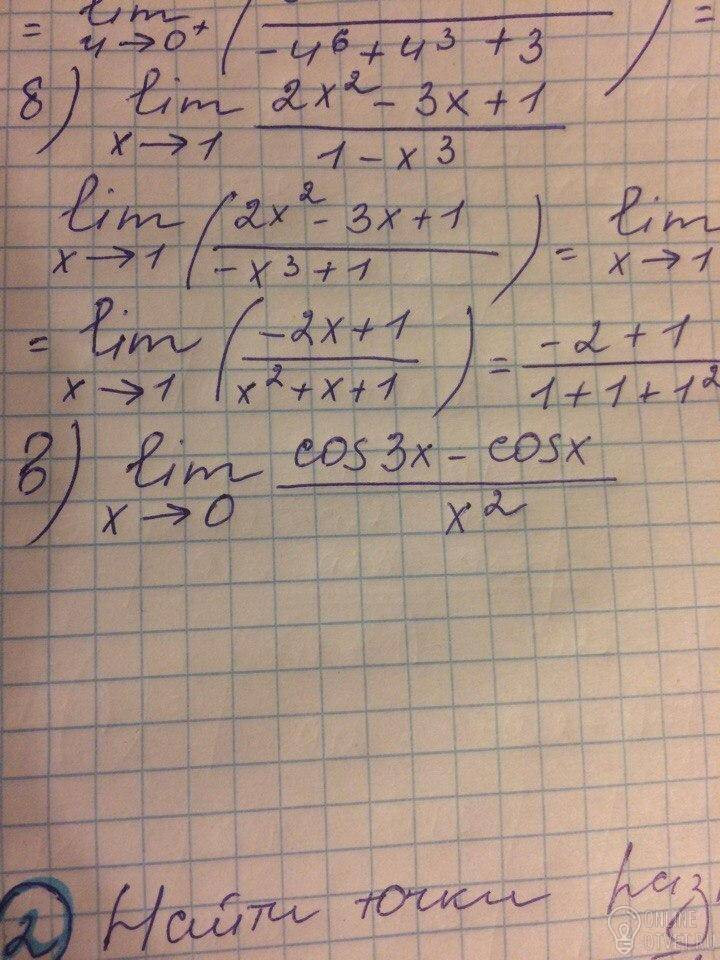 = lim u→0⁺ ( / -u⁶ + u³ + 3 ) =
б) lim x→1 (2x² - 3x + 1) / (1 - x³)
lim x→1 ( (2x² - 3x + 1) / (-x³ + 1) ) = lim x→1
= lim x→1 ( (-2x + 1) / (x² + x + 1) ) = (-2 + 1) / (1 + 1 + 1²)
в) lim x→0 (cos3x - cosx) / x²
2) Найти точки раз
ONLINE
OTVET.RU